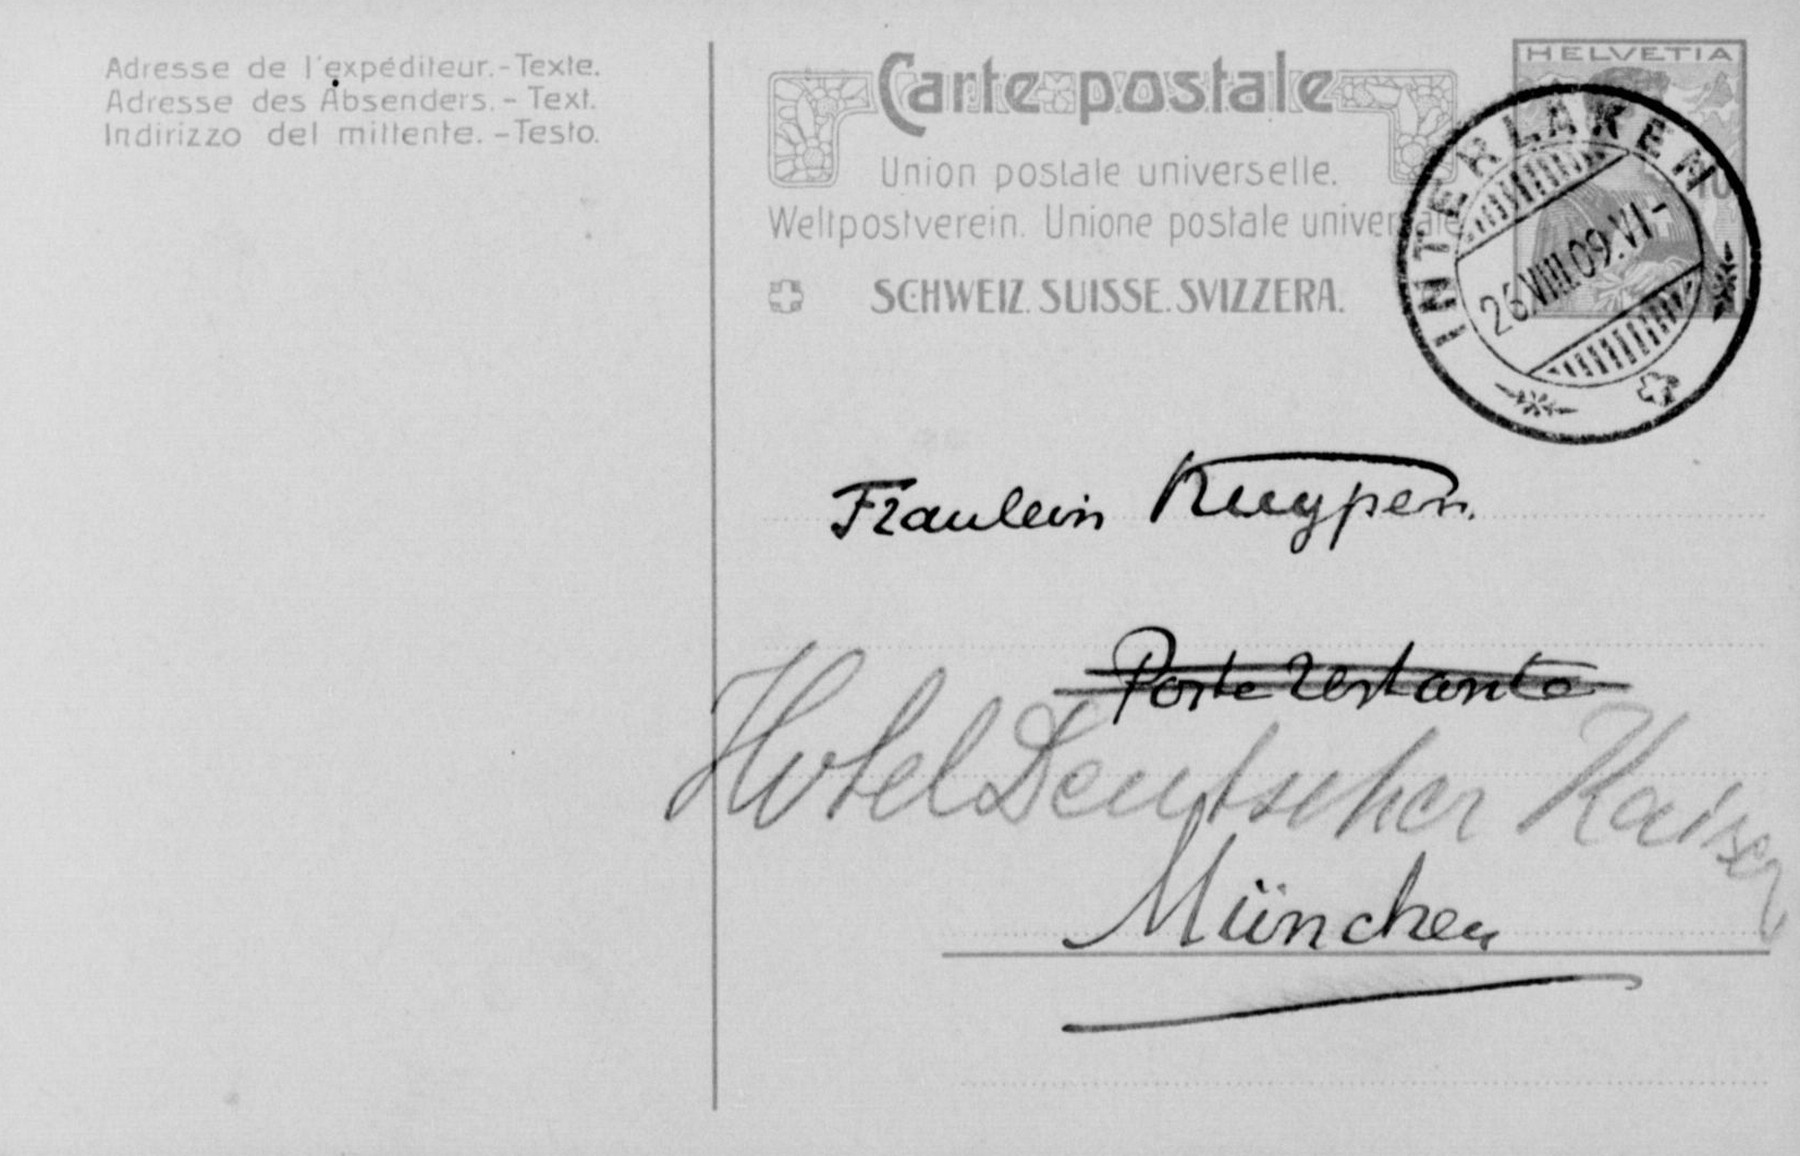 Adresse de l'expéditeur.-Texte.
Adresse des Absenders. - Text.
Indirizzo del mittente. -Testo.
Carte postale
Union postale universelle.
Weltpostverein. Unione postale universale.
SCHWEIZ. SUISSE. SVIZZERA.
HELVETIA
10
INTERLAKEN
26.VIII.09.VI-
Fraulein Kuyper.
Poste restante
Hotel Deutscher Kaiser
München